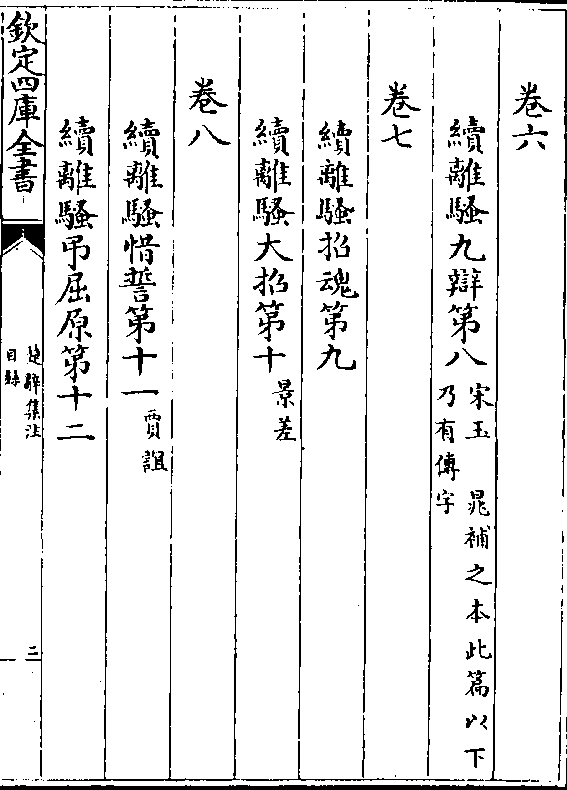 卷六
續離騷九辯第八 宋玉 晁補之本此篇以下
乃有傳字
卷七
續離騷招魂第九
續離騷大招第十 景差
卷八
續離騷惜誓第十一 賈誼
續離騷弔屈原第十二
欽定四庫全書
楚辭集注
目錄
二